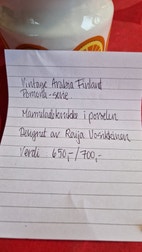 Vintage Arabia Finland
Pomona-serie.
Marmeladekrukke i porselen
Designet av Raija Uosikkinen
Verdi 650,-/700,-